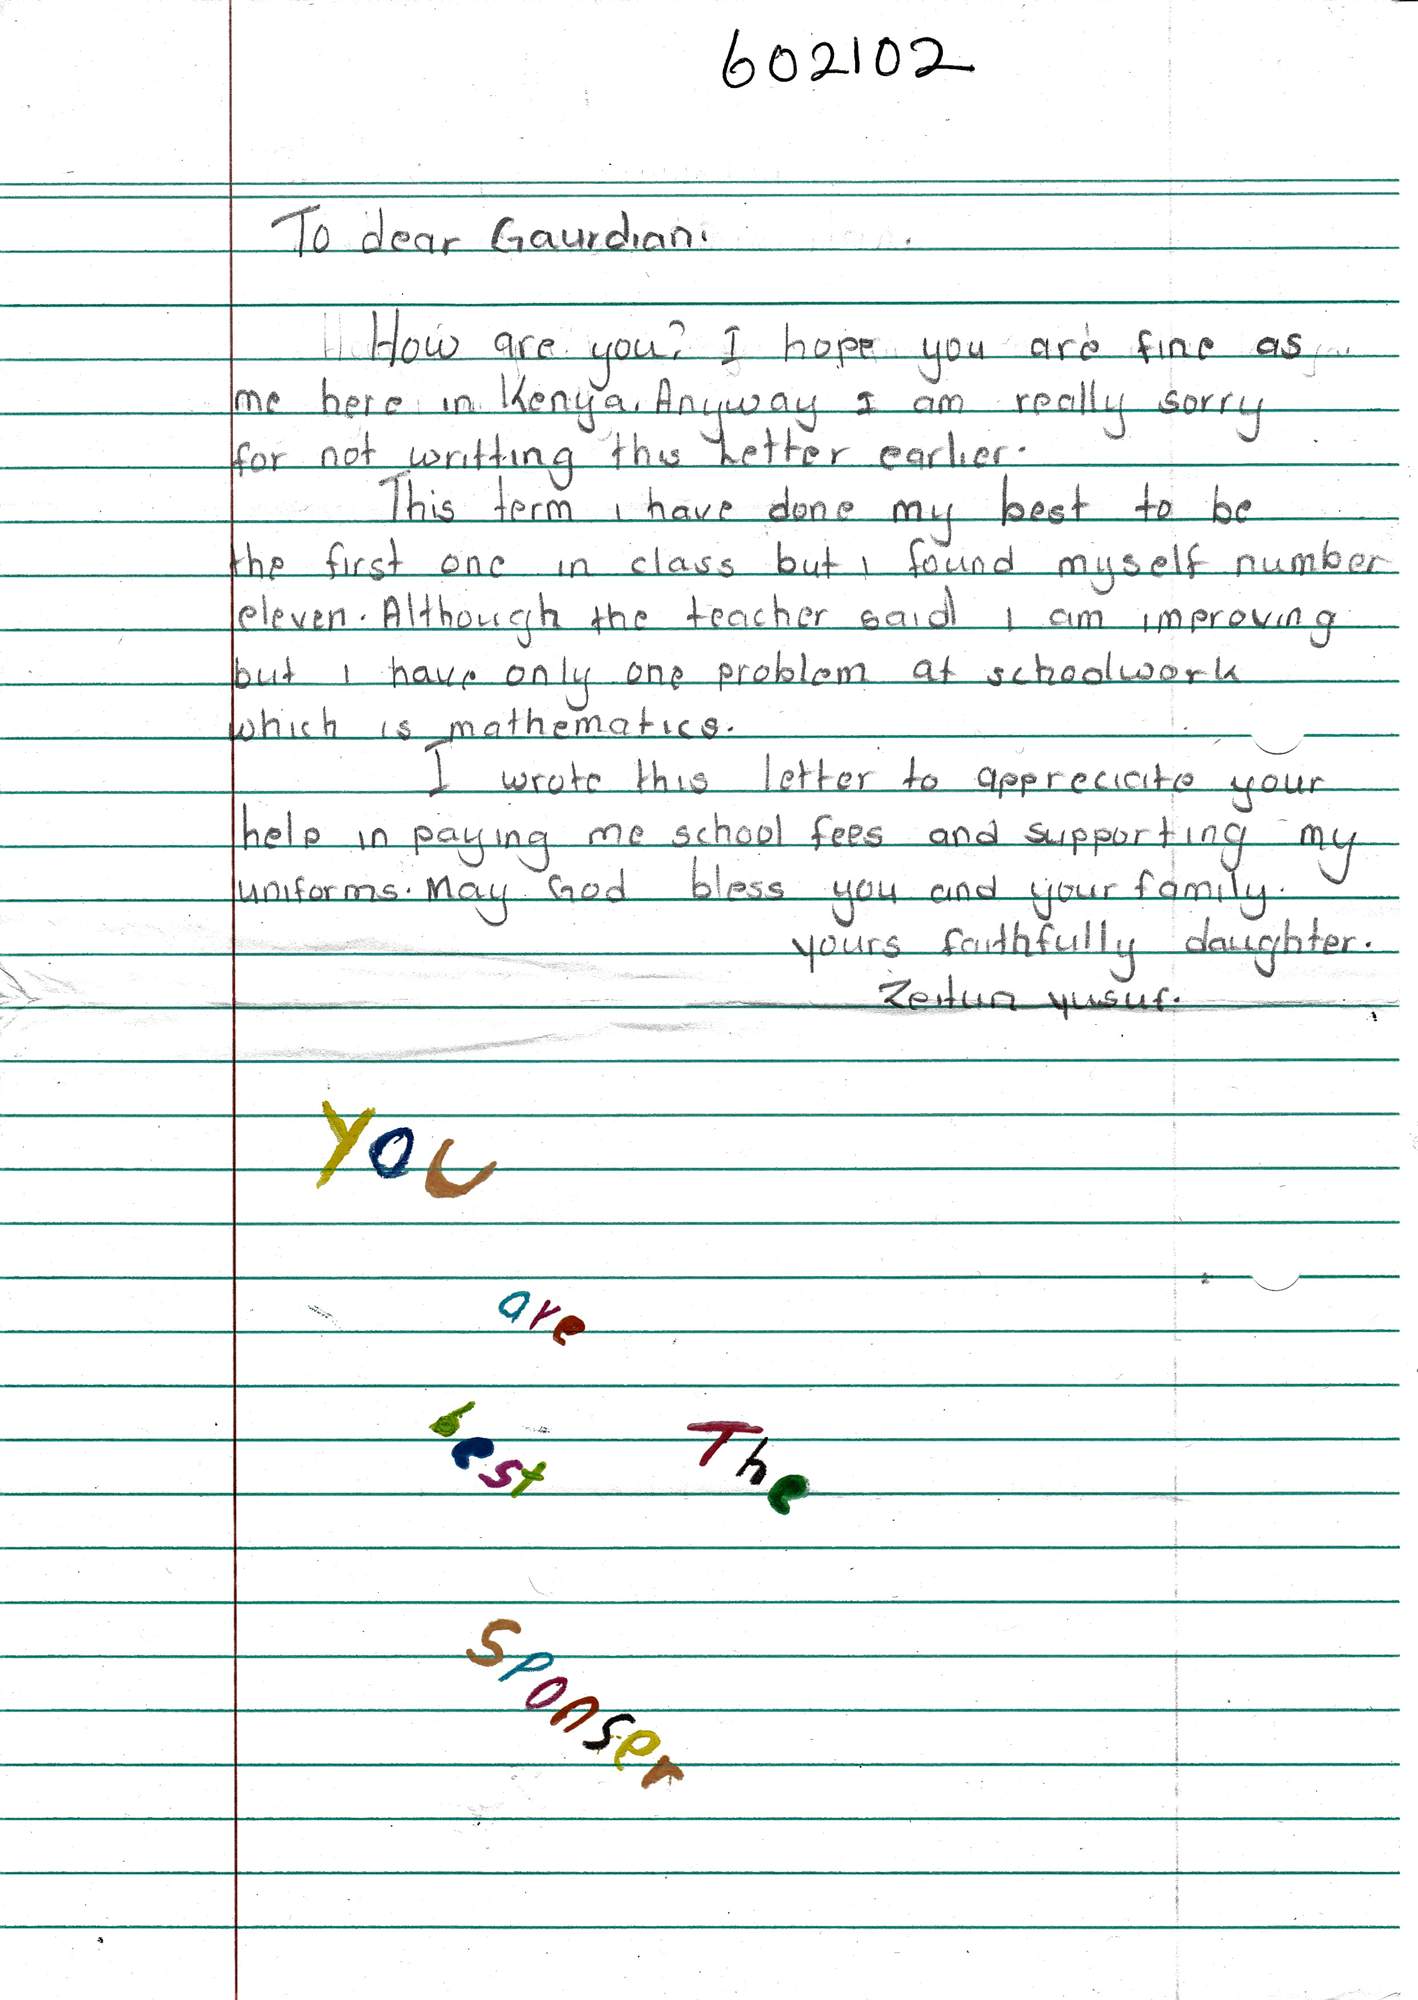 602102
To dear Gaurdian.
How are you? I hope you are fine as
me here in Kenya. Anyway I am really sorry
for not writting this Letter earlier.
This term i have done my best to be
the first one in class but i found myself number
eleven. Although the teacher said I am improving
but I have only one problem at schoolwork
which is mathematics.
I wrote this letter to appreciate your
help in paying me school fees and supporting my
uniforms. May God bless you and your family.
yours faithfully daughter.
Zeitun yusuf.
You
are
best The
Sponser